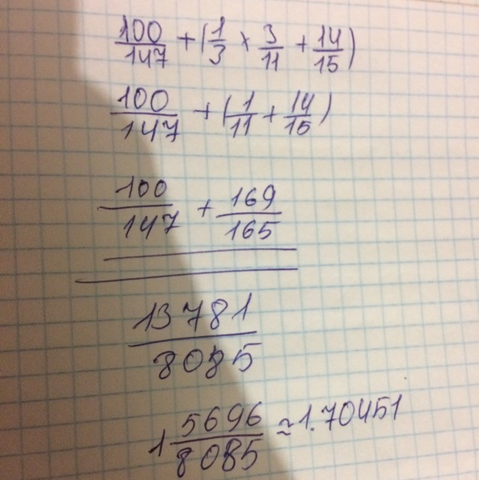 100/147 + (1/3 × 3/11 + 14/15)
100/147 + (1/11 + 14/15)
100/147 + 169/165
13781/8085
1 5696/8085 ≈ 1.70451